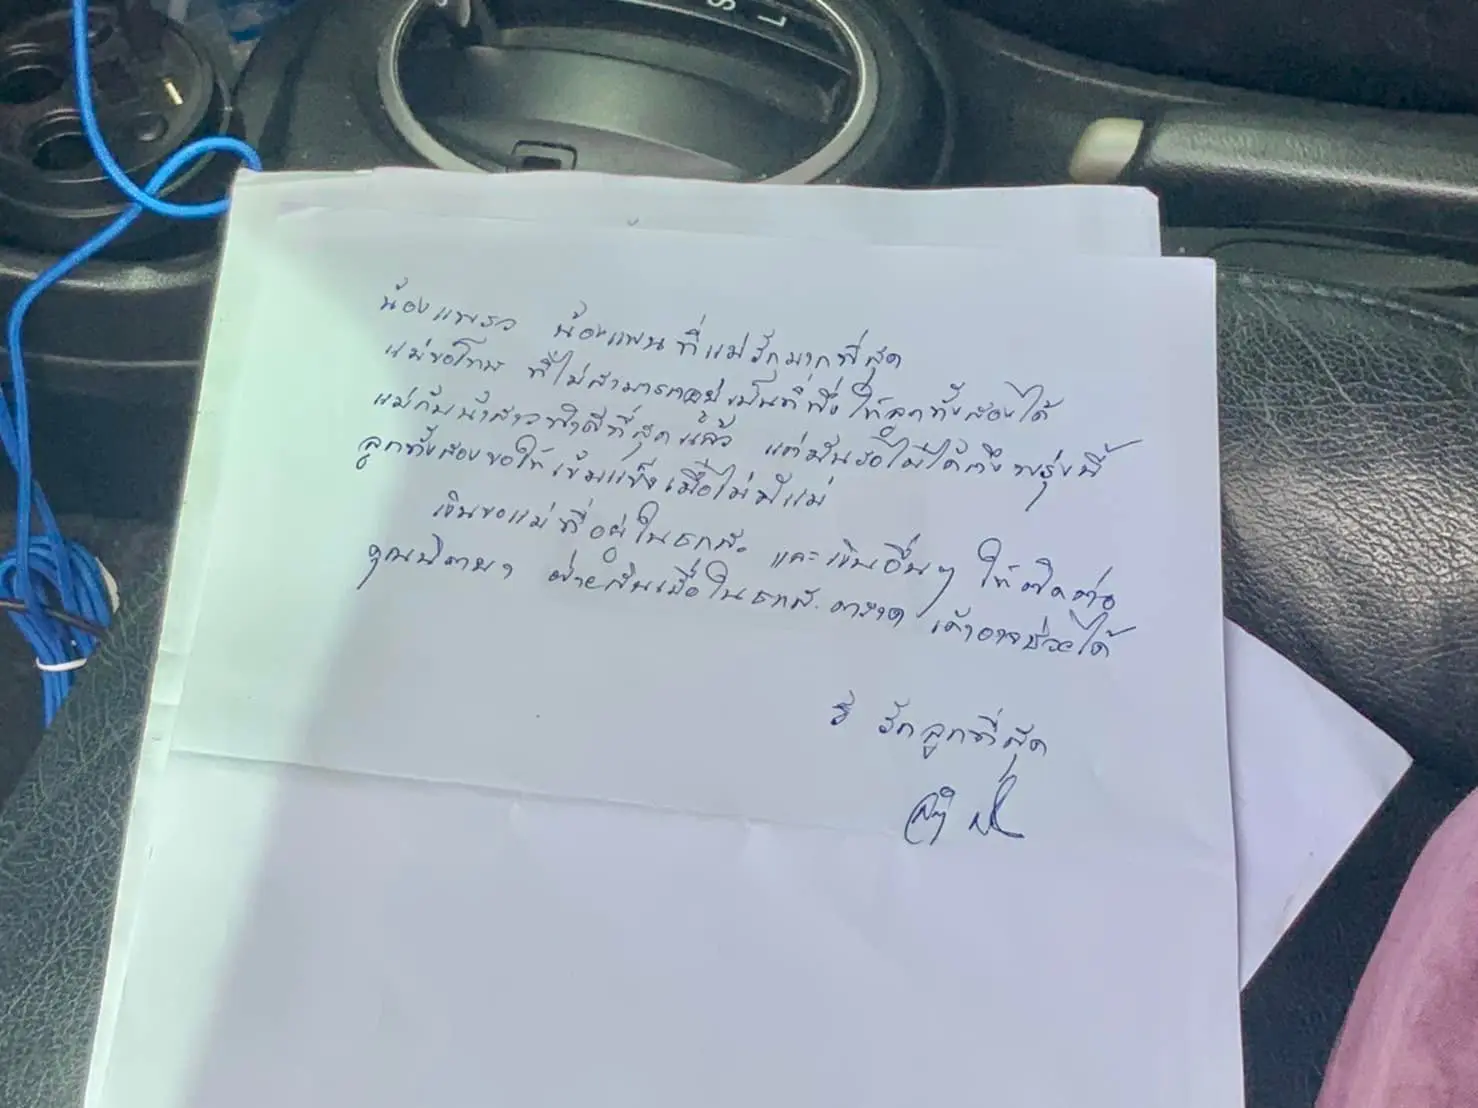 S
L
น้องแพรว น้องแพน ที่แม่รักมากที่สุด
แม่ขอโทษ ที่ไม่สามารถอยู่เป็นที่พึ่งให้ลูกทั้งสองได้
แม่กับน้าสาวทำดีที่สุดแล้ว แต่มันรอไม่ได้ถึงพรุ่งนี้
ลูกทั้งสองขอให้เข้มแข็งเมื่อไม่มีแม่
เงินของแม่ที่อยู่ในธกส. และเงินอื่นๆ ให้ติดต่อ
คุณนิตยา ฝ่ายสินเชื่อในธกส. ตราด เค้าอาจช่วยได้
รักลูกที่สุด